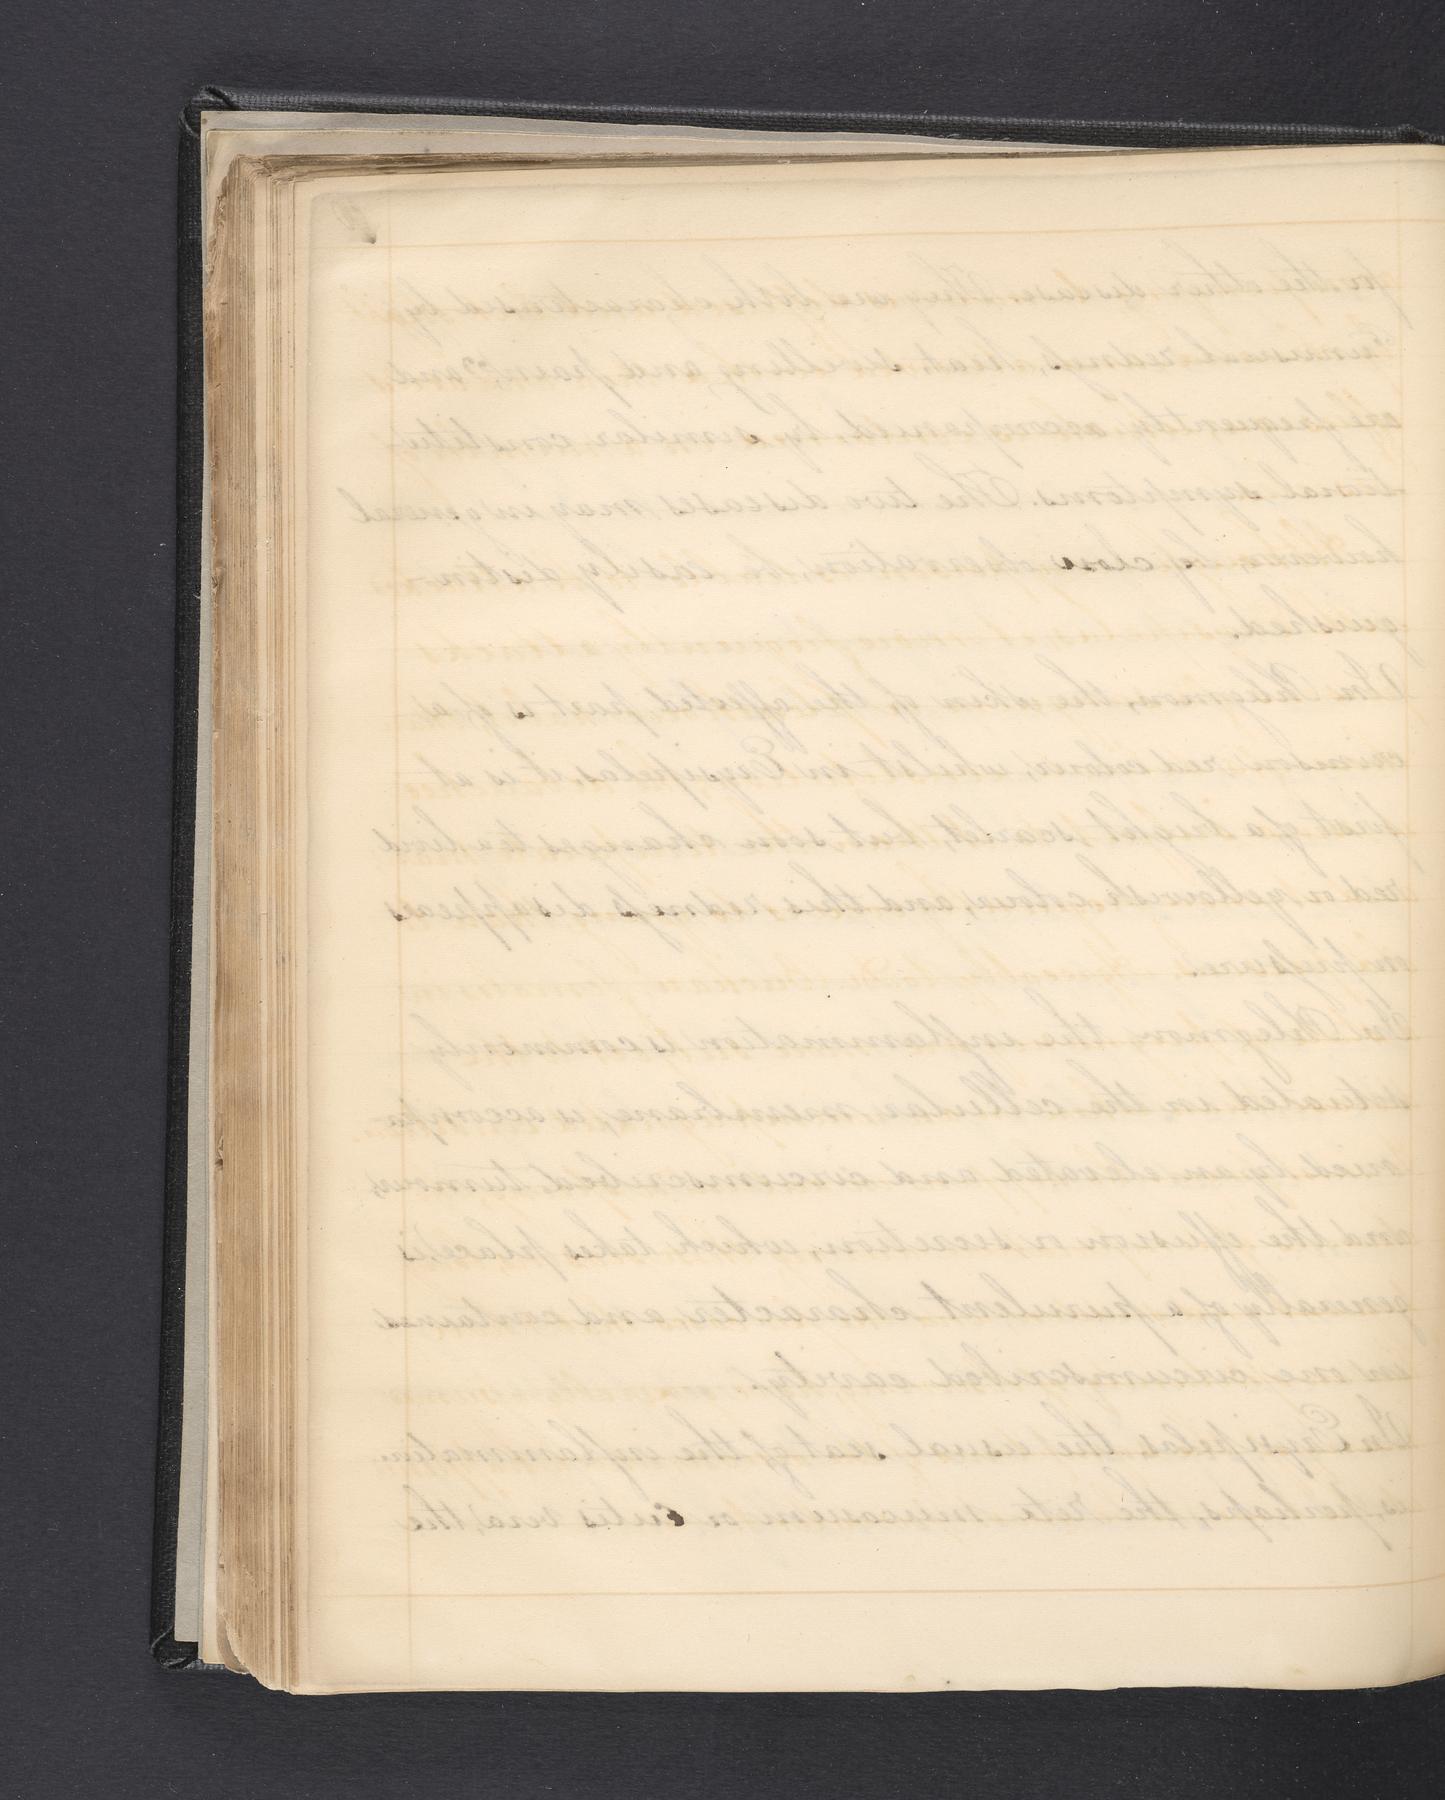 for the other disease. They are both characterised by
"unusual redness, heat, swelling and pain," and
are frequently accompanied by similar constitu-
tional symptoms. The two diseases may in general
however, by close observation, be easily distin-
guished.
In Phlegmon, the skin of the affected part is of a
crimson red colour, whilst in Erysipelas, it is at
first of a bright scarlet, but soon changes to a livid
red or yellowish colour, and this redness disappears
on pressure.
In Phlegmon, the inflammation is commonly
situated in the cellular membrane, is accompa-
nied by an elevated and circumscribed tumour,
and the effusion or secretion, which takes place, is
generally of a purulent character, and contained
in one circumscribed cavity.
In Erysipelas, the usual seat of the inflammation
is perhaps, the rete mucosum or cutis vera, the